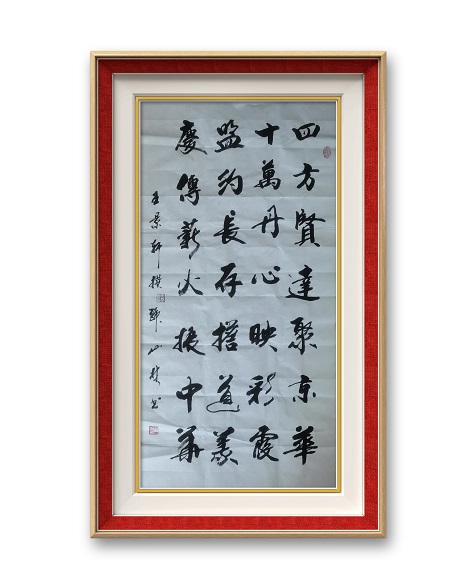 四方賢達聚京華
十萬丹心映彩霞
盟約長存擔道義
慶傳薪火振中華
王景軒撰 山林書